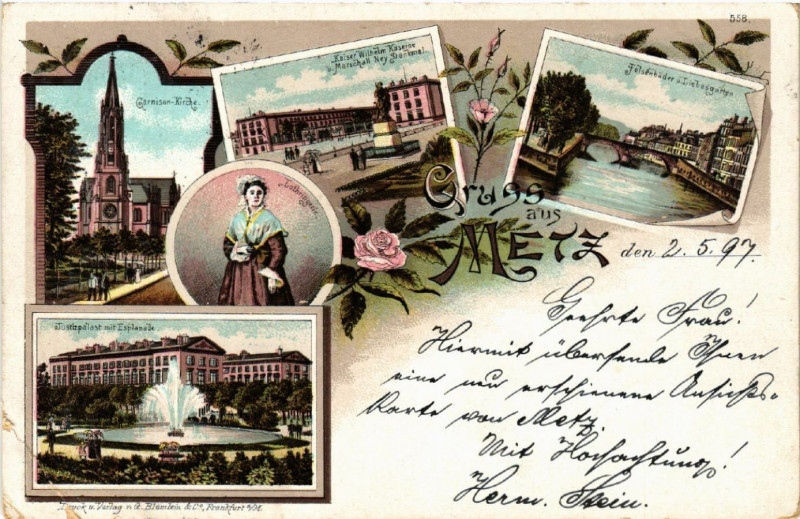 558.
Garnison-Kirche.
Kaiser Wilhelm Kaserne
Marschall Ney Denkmal
Felsenbäder u. Liebesgarten
Lothringerin
Gruss
aus
METZ
den 2. 5. 97.
Justizpalast mit Esplanade
Geehrte Frau!
Hiermit übersende Ihnen
eine neu erschienene Ansichts-
karte von Metz.
Mit Hochachtung!
Herm. Stein.
Druck u. Verlag v. G. Blümlein & Co., Frankfurt a/M.